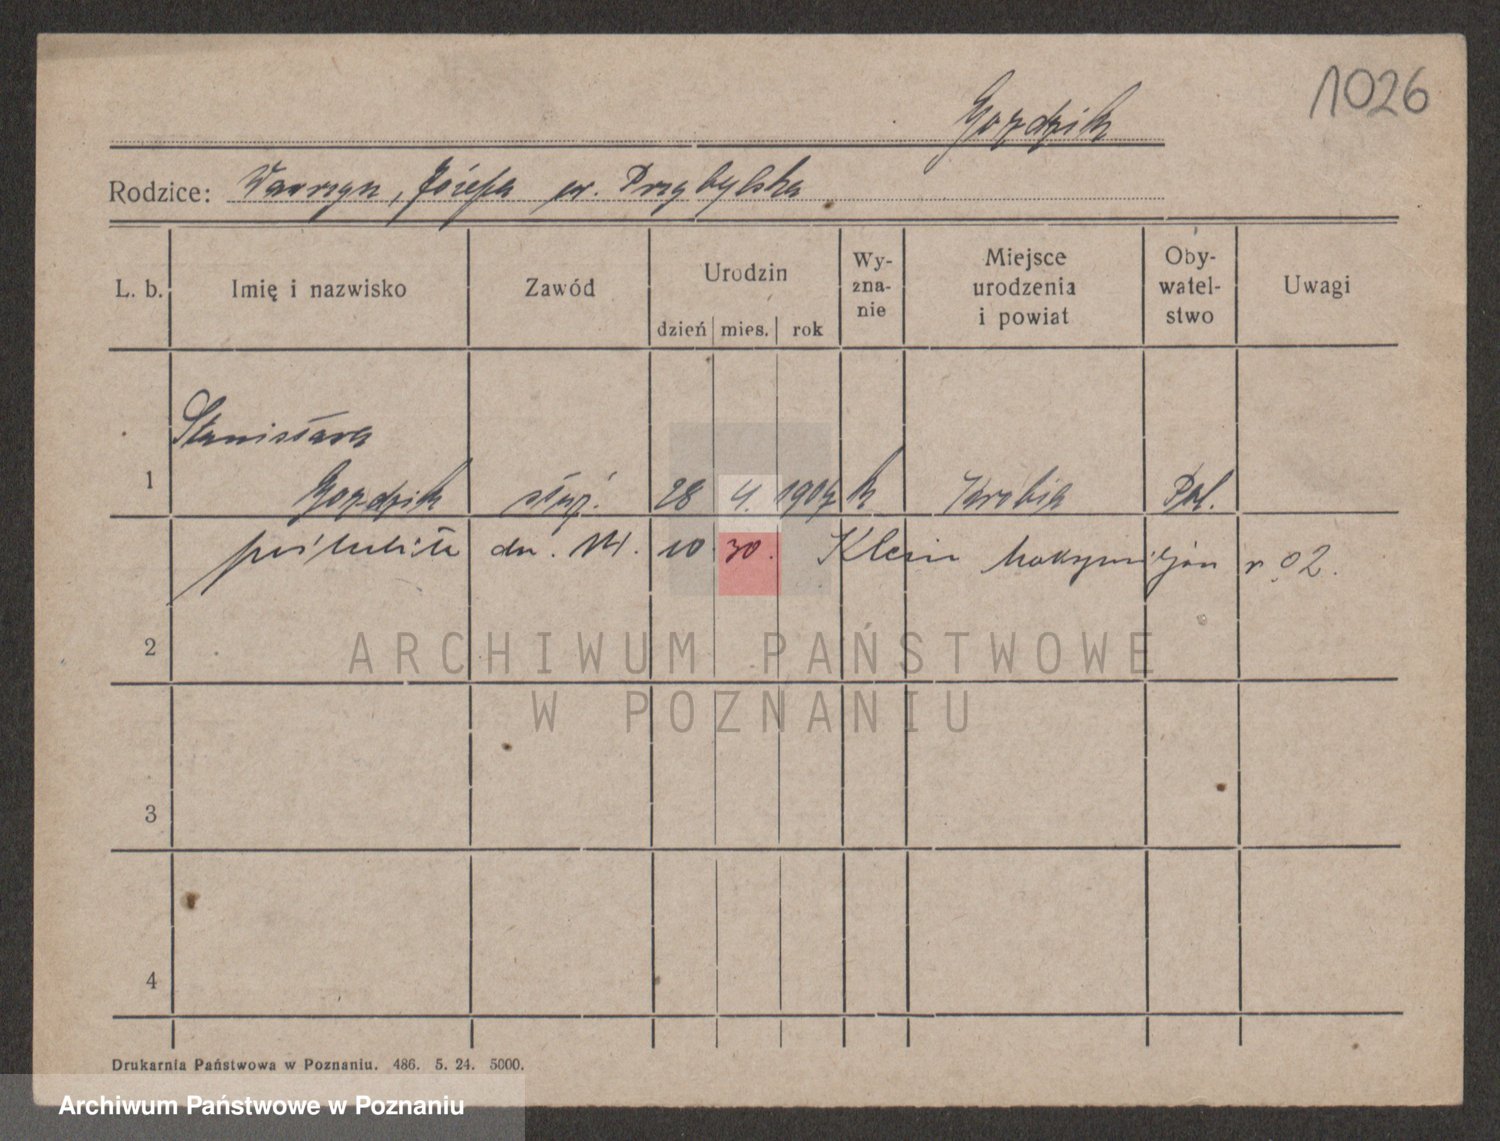 1026
Gozdzik
Rodzice: Wawrzyn, Józefa ur. Przybylska
L. b. Imię i nazwisko Zawód Urodzin dzień mies. rok Wy-zna-nie Miejsce urodzenia i powiat Oby-watel-stwo Uwagi
Stanisława
1 Gozdzik służ. 28 4. 1904 k Pol.
poślubiła dn. 10. 30. Klein Maksymiljan r. 02.
2
ARCHIWUM PAŃSTWOWE
W POZNANIU
3
4
Drukarnia Państwowa w Poznaniu. 486. 5. 24. 5000.
Archiwum Państwowe w Poznaniu